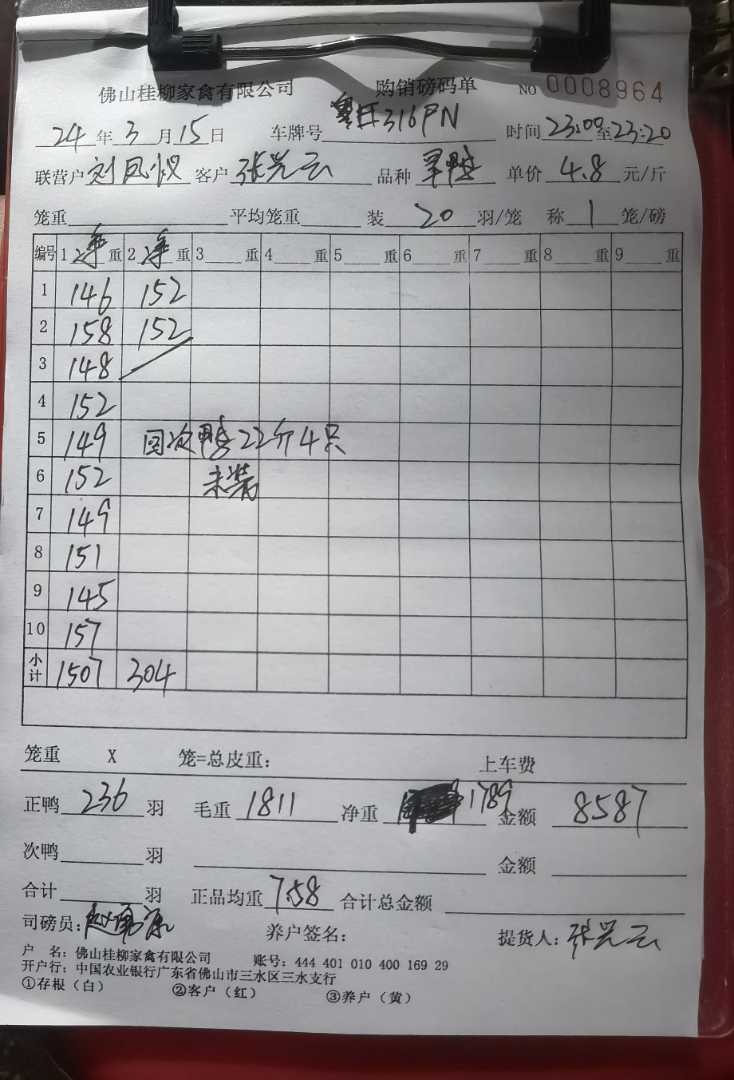 佛山桂柳家禽有限公司 购销磅码单 NO 0008964
24年3月15日 车牌号 316PN 时间23:00至23:20
联营户 刘凤 客户 张兴云 品种 单价 4.8 元/斤
笼重 平均笼重 装 20 羽/笼 称 1 笼/磅
编号 1 净 重 2 净 重 3 重 4 重 5 重 6 重 7 重 8 重 9 重
1 146 152
2 158 152
3 148
4 152
5 149 回次鸭22斤4只
6 152 未装
7 149
8 151
9 145
10 157
小计 1507 304
笼重 X 笼=总皮重: 上车费
正鸭 236 羽 毛重 1811 净重 1789 金额 8587
次鸭 羽 金额
合计 羽 正品均重 7.58 合计总金额
司磅员: 养户签名: 提货人: 张兴云
户 名: 佛山桂柳家禽有限公司 账号: 444 401 010 400 169 29
开户行: 中国农业银行广东省佛山市三水区三水支行
①存根(白) ②客户(红) ③养户(黄)